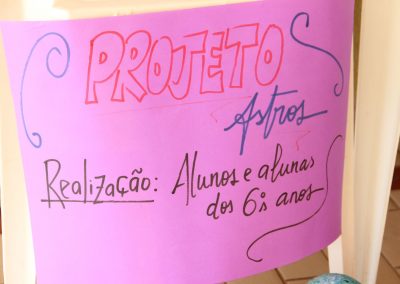 PROJETO
Astros
Realização: Alunos e alunas
dos 6ºs anos